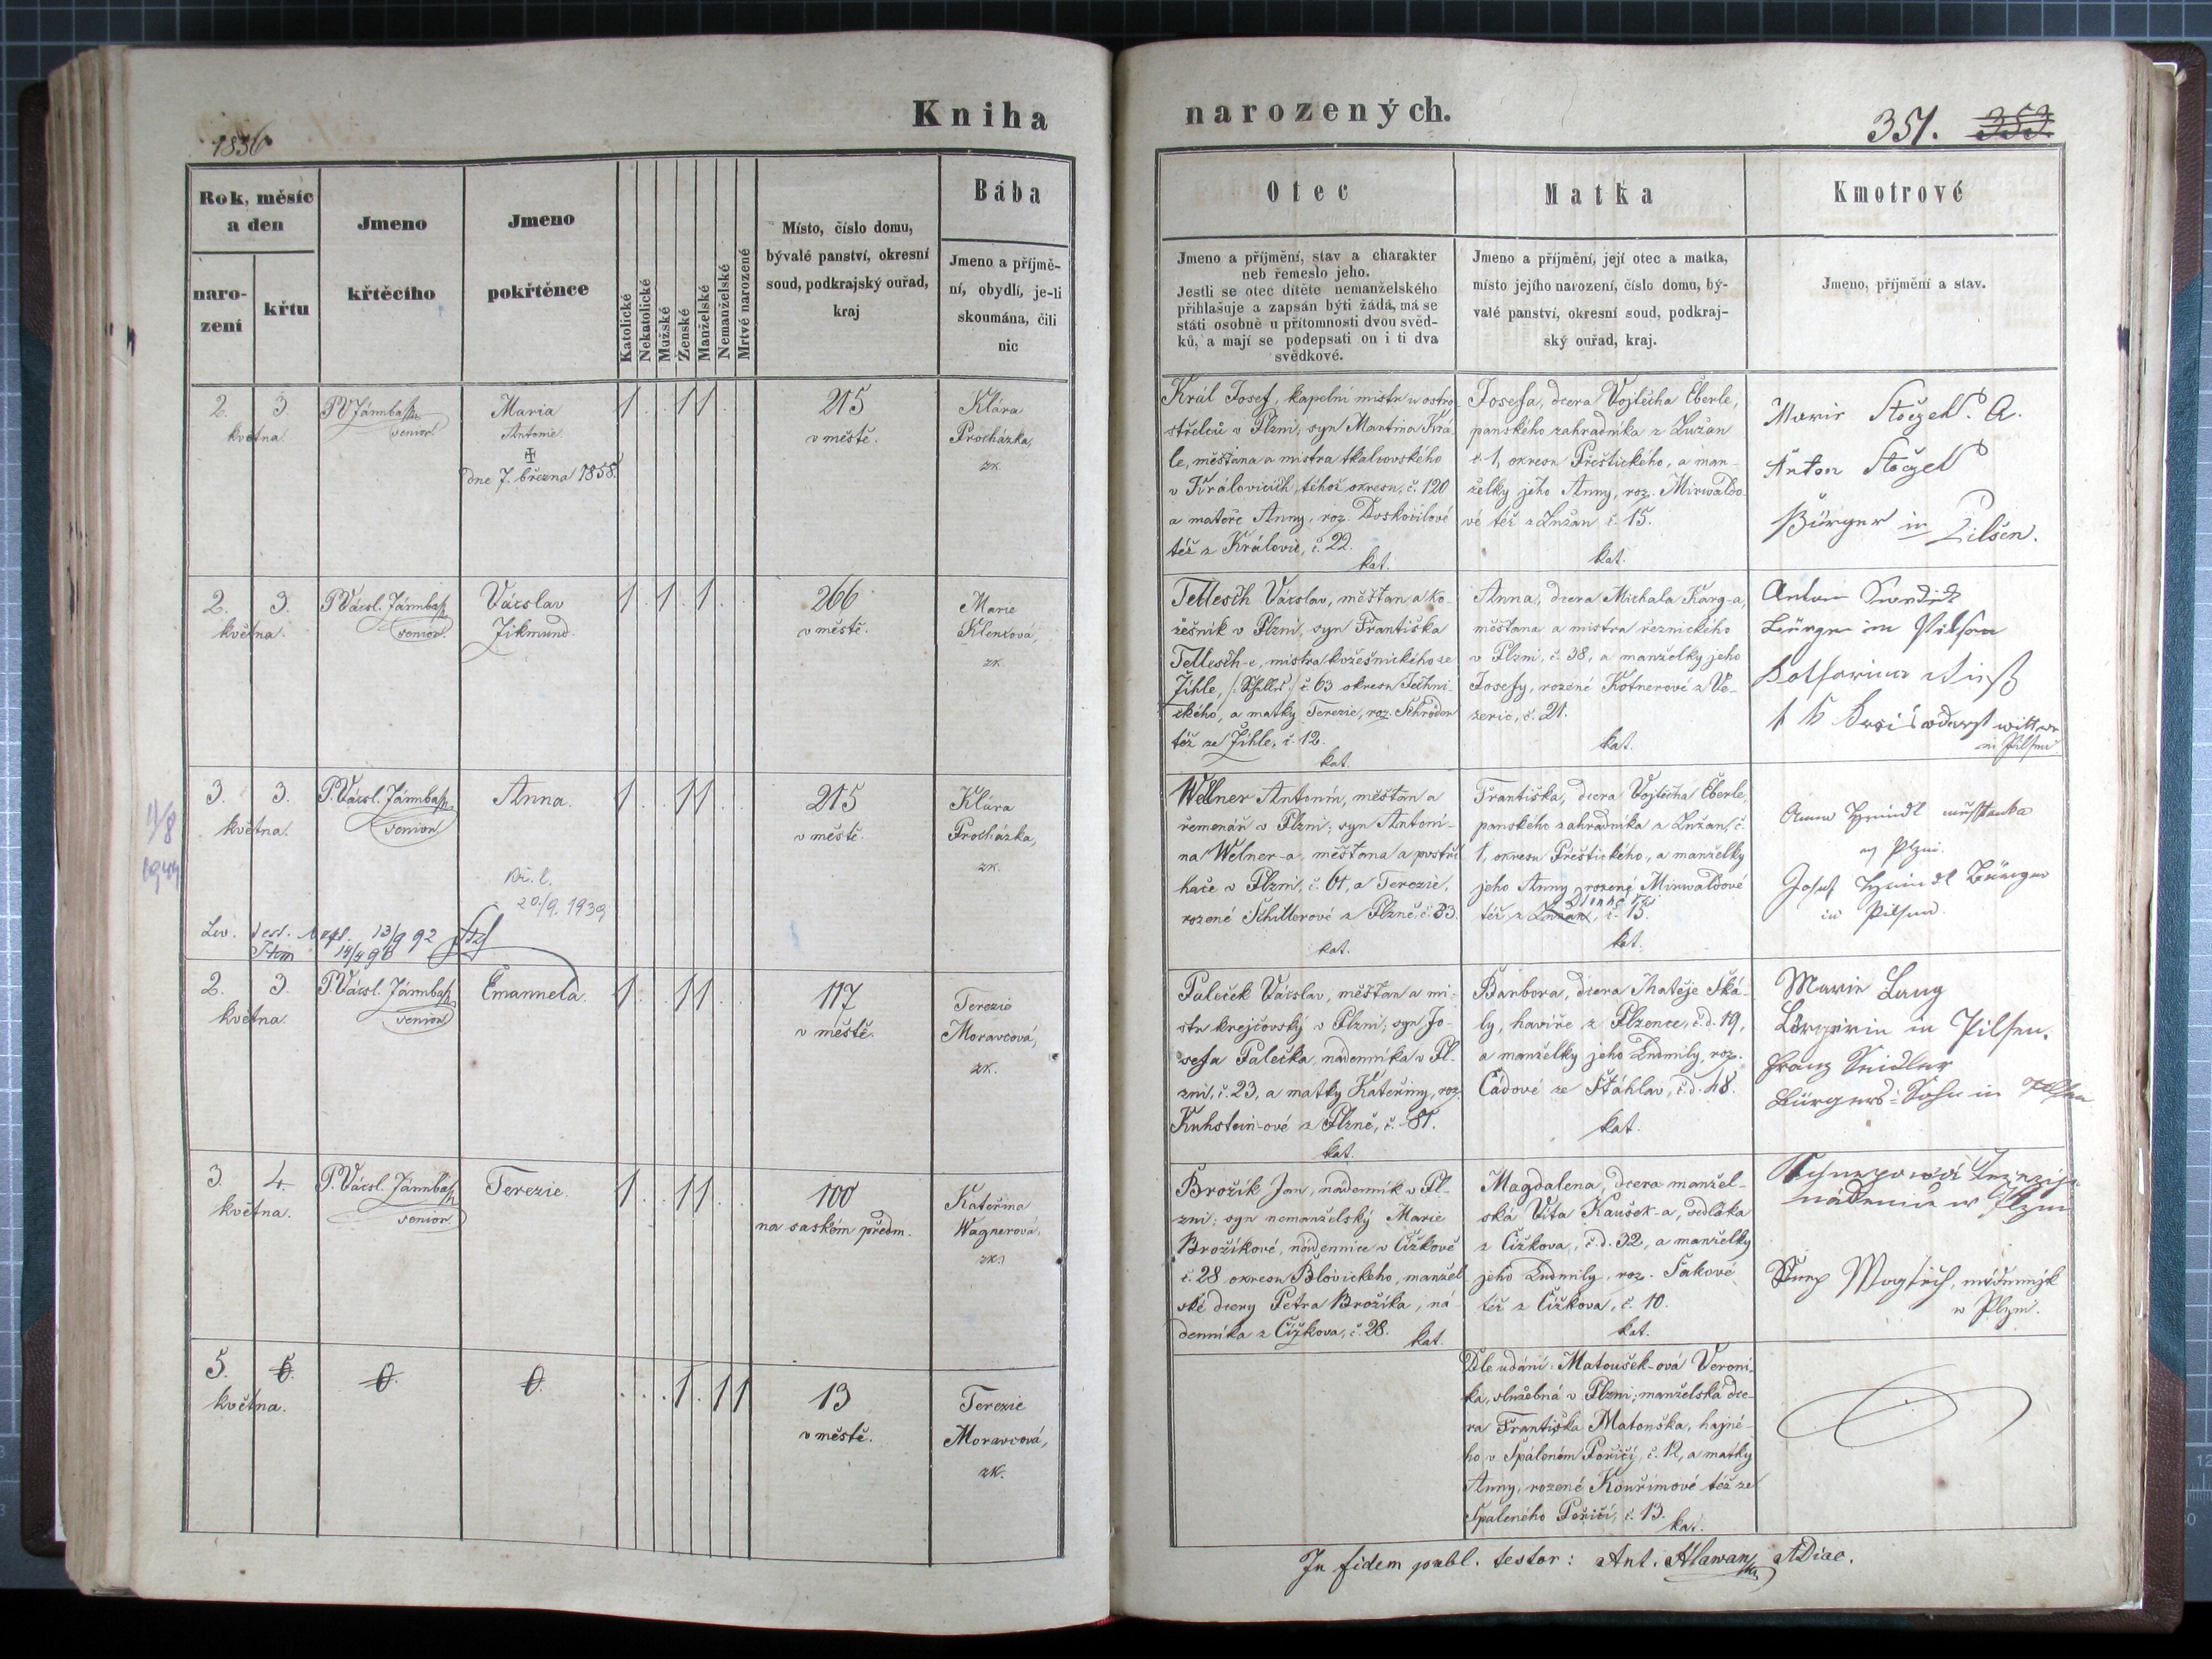 Kniha
narozených.
1856
351. 353.
Rok, měsíc
a den
naro-
zení
křtu
Jmeno
křtěcího
Jmeno
pokřtěnce
Katolické
Nekatolické
Mužské
Ženské
Manželské
Nemanželské
Mrtvé narozené
Místo, číslo domu,
bývalé panství, okresní
soud, podkrajský ouřad,
kraj
Bába
Jmeno a příjmě-
ní, obydlí, je-li
skoumána, čili
nic
Otec
Jmeno a příjmění, stav a charakter
neb řemeslo jeho.
Jestli se otec dítěte nemanželského
přihlašuje a zapsán býti žádá, má se
státi osobně u přítomnosti dvou svěd-
ků, a mají se podepsati on i ti dva
svědkové.
Matka
Jmeno a příjmění, její otec a matka,
místo jejího narození, číslo domu, bý-
valé panství, okresní soud, podkraj-
ský ouřad, kraj.
Kmotrové
Jmeno, příjmění a stav.
2. 3.
května.
senior.
Maria
Antonie.
dne 7. března 1858.
1 1 1
215
v městě.
Klára
Procházka,
zk.
Král Josef, kapelní mistr u ostro-
střelců v Plzni; syn Martina Krá-
le, měšťana a mistra tkalcovského
v Kralovicích, téhož okresu, č. 120
a mateře Anny, roz. Doskočilové
též z Kralovic, č. 22.
kat.
Josefa, dcera Vojtěcha Eberle,
panského zahradníka z Lužan
č. 1, okresu Přeštického, a man-
želky jeho Anny, roz. Mirwaldo-
vé též z Lužan č. 15.
kat.
Anton
Bürger in Pilsen.
2. 3.
května.
P. Václ.
senior.
Václav
Zikmund.
1 1 1
266
v městě.
Marie
Klenxová,
zk.
Tellesch Václav, měšťan a ko-
žešník v Plzni, syn Františka
Tellesch-e, mistra kožešnického ze
Žihle, č. 63 okresu Jechni-
ckého, a matky Terezie, roz. Schröder
též ze Žihle, č. 12.
kat.
Anna, dcera Michala Karg-a,
měšťana a mistra řeznického
v Plzni, č. 38, a manželky jeho
Josefy, rozené Kotnerové z Ve-
zeric, č. 21.
kat.
Anton
Bürger in Pilsen
Katharina
in Pilsen
3. 3.
května.
P. Václ.
senior
Anna.
1 1 1
215
v městě.
Klára
Procházka,
zk.
11/8
1944
20./9. 1939
13/9 92
Wellner Antonín, měšťan a
řemenář v Plzni; syn Antoní-
na Welner-a, měšťana a postři-
hače v Plzni, č. 61, a Terezie,
rozené Schillerové z Plzně, č. 33.
kat.
Františka, dcera Vojtěcha Eberle,
panského zahradníka z Lužan, č.
1, okresu Přeštického, a manželky
jeho Anny, rozené Mirwaldové
též z Lužan, č. 15.
kat.
Anna
Plzni.
Josef Bürger
in Pilsen
2. 3.
května.
P. Václ.
senior
Emanuela.
1 1 1
117
v městě.
Terezie
Moravcová,
zk.
Paleček Václav, měšťan a mi-
str krejčovský v Plzni; syn Jo-
sefa Palečka, nádenníka v Pl-
zni, č. 23, a matky Kateřiny, roz.
Kuhstein-ové z Plzně, č. 81.
kat.
Barbora, dcera Matěje Ská-
ly, havíře z Plzence, č.d. 19,
a manželky jeho Ludmily, roz.
Čádové ze Štáhlav, č.d. 48.
kat.
Marie Lang
Bürgerin in Pilsen.
Franz Seidler
Bürgers-Sohn in Pilsen
3. 4.
května.
P. Václ.
senior
Terezie.
1 1 1
100
na saském předm.
Kateřina
Wagnerová,
zk.
Brožík Jan, nádenník v Pl-
zni; syn nemanželský Marie
Brožíkové, nádennice v Čížkově
č. 28 okresu Blovického, manžel-
ské dcery Petra Brožíka, ná-
denníka z Čížkova, č. 28. kat.
Magdalena, dcera manžel-
ská Víta Kaušek-a, sedláka
z Čížkova, č.d. 32, a manželky
jeho Ludmily, roz. Sakové
též z Čížkova, č. 10.
kat.
w Plzni
w Plzni.
5. 6.
května.
0. 0.
1 1 1
13
v městě.
Terezie
Moravcová,
zk.
Dle udání: Matoušek-ová Veroni-
ka, služebná v Plzni; manželská dce-
ra Františka Matouška, hajné-
ho v Spáleném Poříčí, č. 12, a matky
Anny, rozené Kouřimové též ze
Spáleného Poříčí, č. 13.
kat.
In fidem publ. testor: Ant. Hlawan